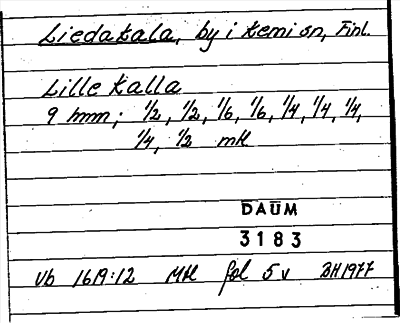 Liedakala, by i Kemi sn, Finl.
Lille Kalla
9 hmm; 1/2, 1/2, 1/6, 1/6, 1/4, 1/4, 1/4,
1/4, 1/2 mkl
DAUM
3183
Vb 1619:12 Mkl fol 5v BH1977